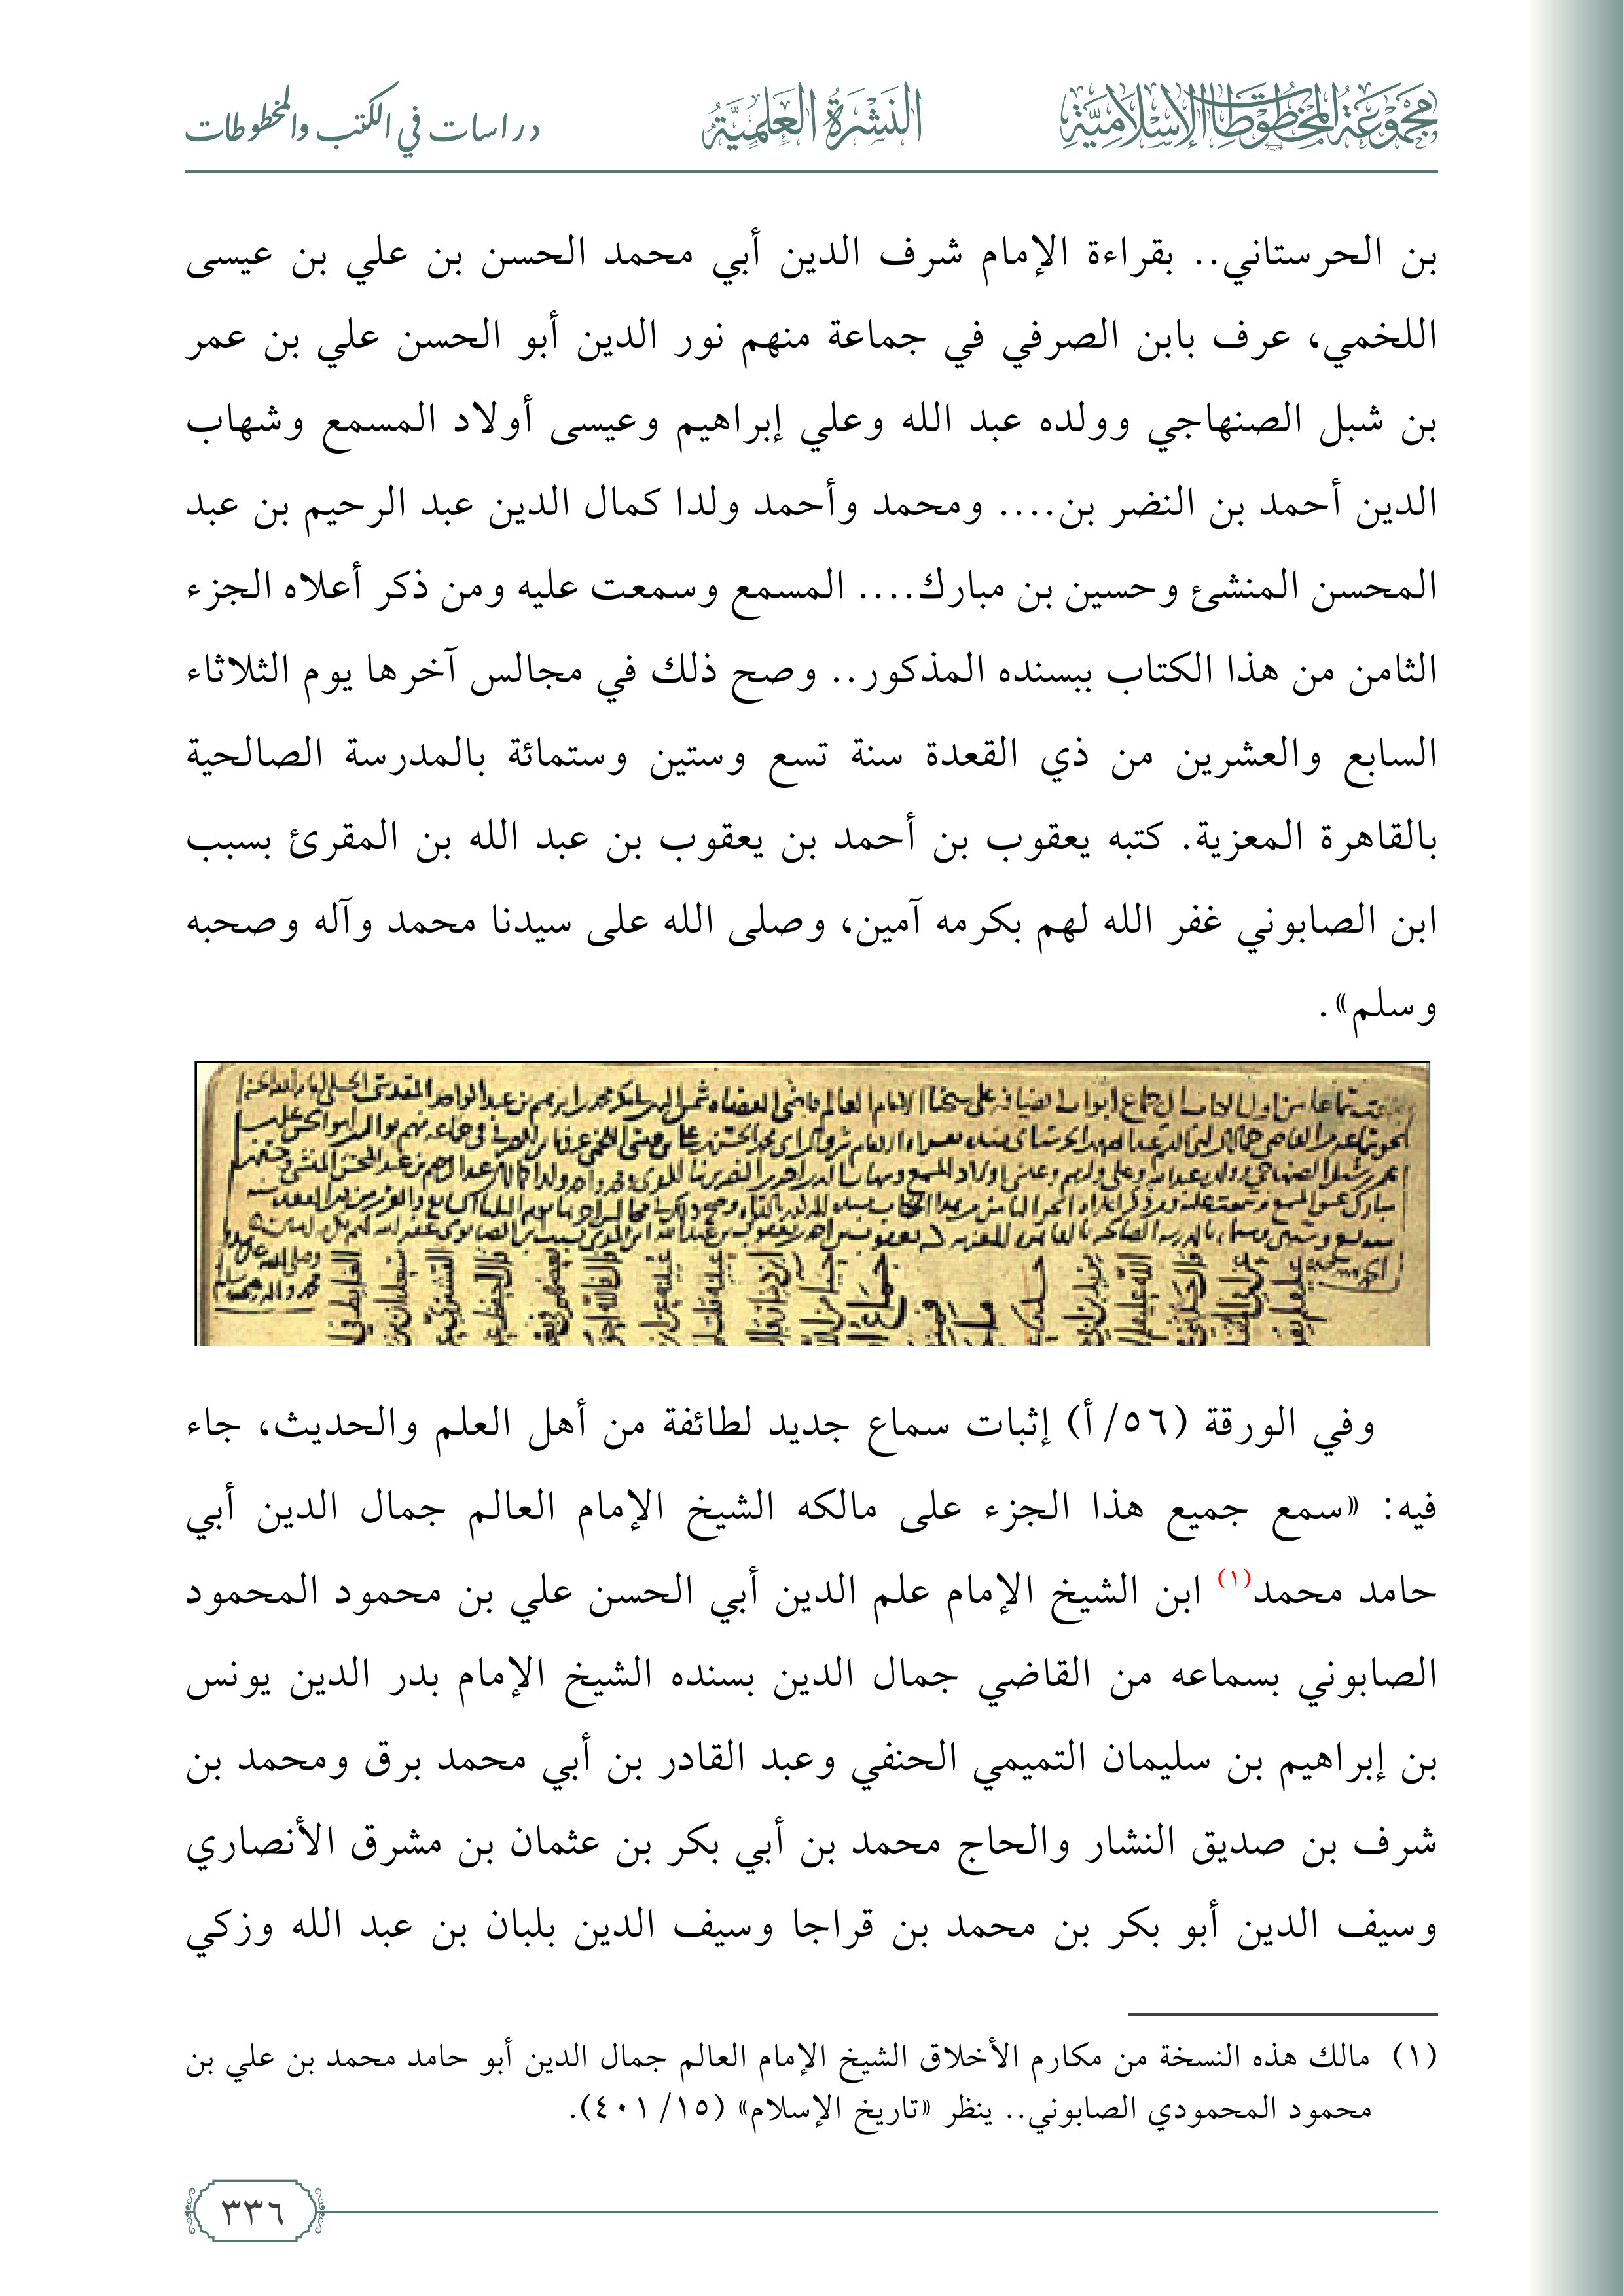 مجموعة المخطوطات الإسلامية
النشرة العلمية
دراسات في الكتب والمخطوطات
بن الحرستاني.. بقراءة الإمام شرف الدين أبي محمد الحسن بن علي بن عيسى
اللخمي، عرف بابن الصرفي في جماعة منهم نور الدين أبو الحسن علي بن عمر
بن شبل الصنهاجي وولده عبد الله وعلي إبراهيم وعيسى أولاد المسمع وشهاب
الدين أحمد بن النضر بن.... ومحمد وأحمد ولدا كمال الدين عبد الرحيم بن عبد
المحسن المنشئ وحسين بن مبارك.... المسمع وسمعت عليه ومن ذكر أعلاه الجزء
الثامن من هذا الكتاب ببسنده المذكور.. وصح ذلك في مجالس آخرها يوم الثلاثاء
السابع والعشرين من ذي القعدة سنة تسع وستين وستمائة بالمدرسة الصالحية
بالقاهرة المعزية. كتبه يعقوب بن أحمد بن يعقوب بن عبد الله بن المقرئ بسبب
ابن الصابوني غفر الله لهم بكرمه آمين، وصلى الله على سيدنا محمد وآله وصحبه
وسلم».
وفي الورقة (٥٦/ أ) إثبات سماع جديد لطائفة من أهل العلم والحديث، جاء
فيه: «سمع جميع هذا الجزء على مالكه الشيخ الإمام العالم جمال الدين أبي
حامد محمد(١) ابن الشيخ الإمام علم الدين أبي الحسن علي بن محمود المحمود
الصابوني بسماعه من القاضي جمال الدين بسنده الشيخ الإمام بدر الدين يونس
بن إبراهيم بن سليمان التميمي الحنفي وعبد القادر بن أبي محمد برق ومحمد بن
شرف بن صديق النشار والحاج محمد بن أبي بكر بن عثمان بن مشرق الأنصاري
وسيف الدين أبو بكر بن محمد بن قراجا وسيف الدين بلبان بن عبد الله وزكي
(١) مالك هذه النسخة من مكارم الأخلاق الشيخ الإمام العالم جمال الدين أبو حامد محمد بن علي بن
محمود المحمودي الصابوني.. ينظر «تاريخ الإسلام» (١٥/ ٤٠١).
٣٣٦